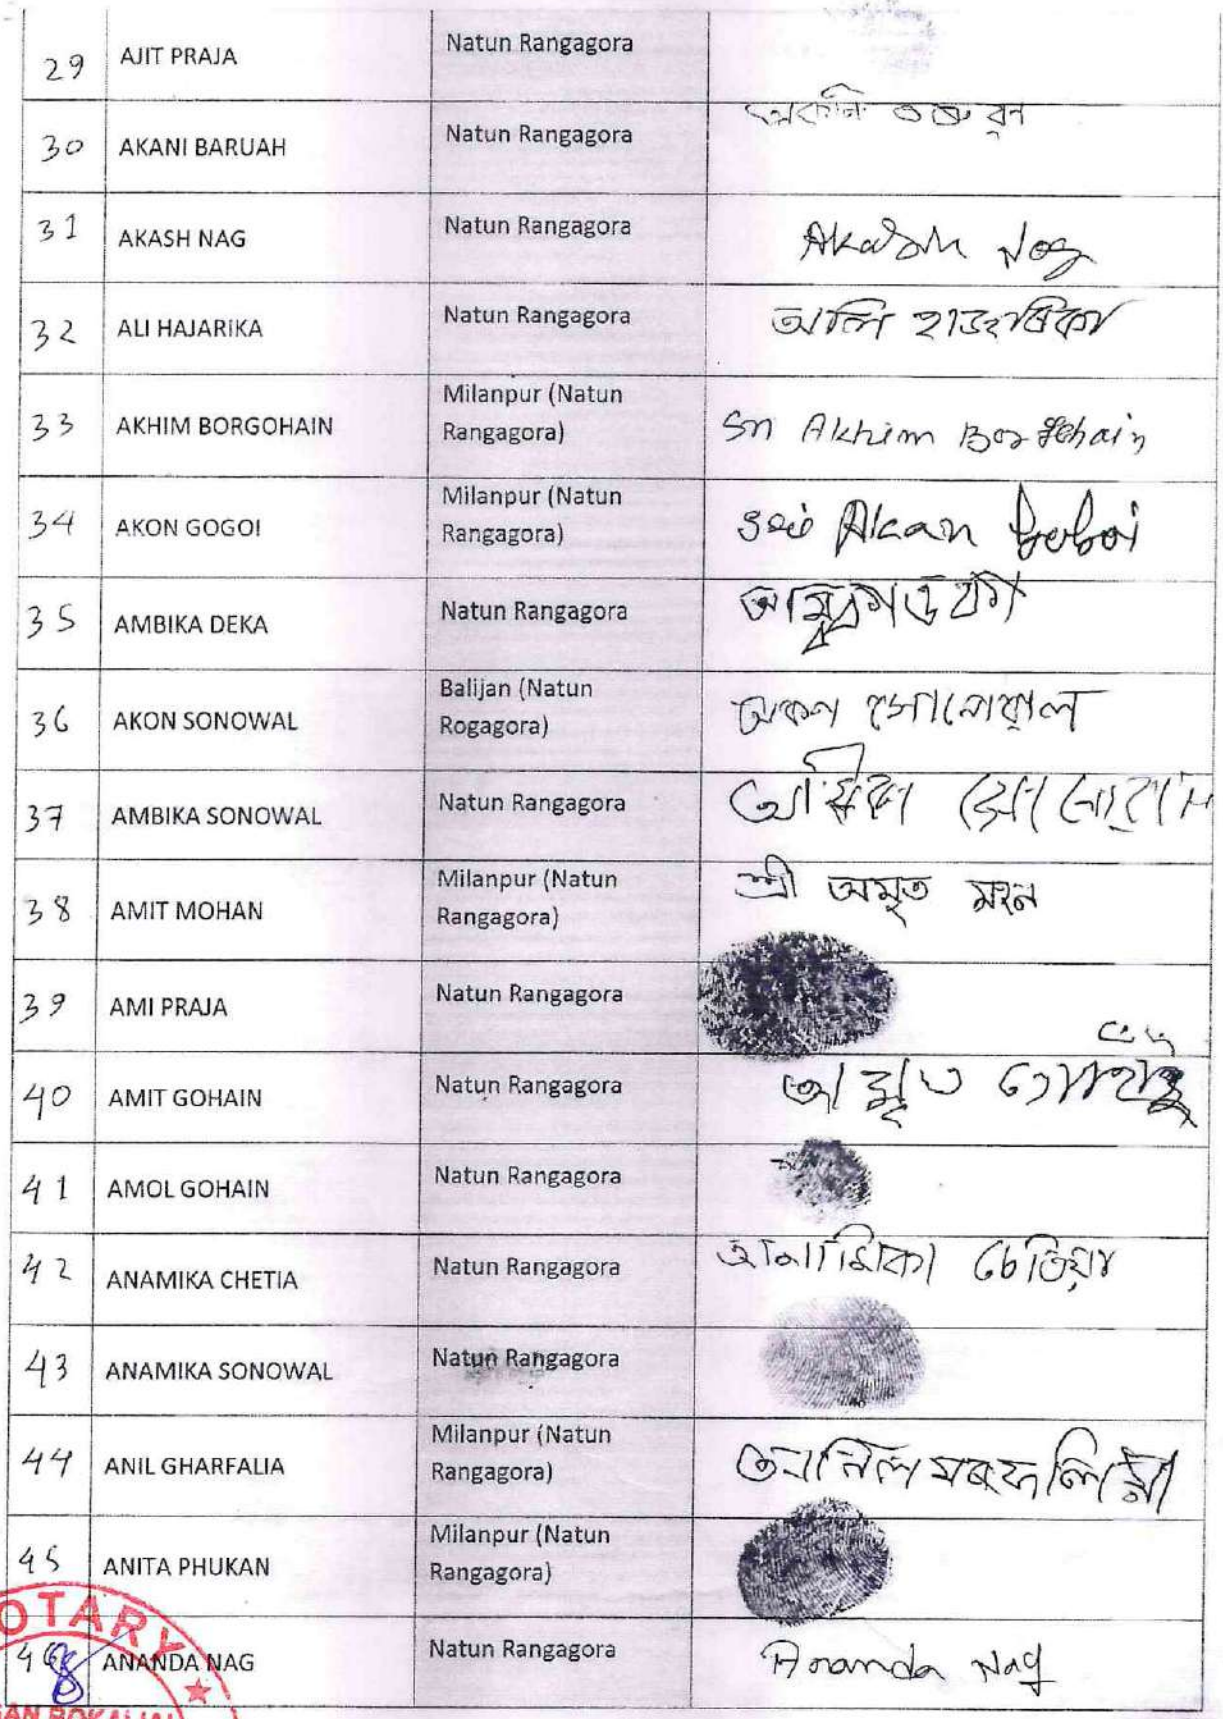 29 AJIT PRAJA Natun Rangagora
30 AKANI BARUAH Natun Rangagora
31 AKASH NAG Natun Rangagora Akash Nag
32 ALI HAJARIKA Natun Rangagora অলি হাজৰিকা
33 AKHIM BORGOHAIN Milanpur (Natun
Rangagora) Akhim Borgohain
34 AKON GOGOI Milanpur (Natun
Rangagora) Akan
35 AMBIKA DEKA Natun Rangagora
36 AKON SONOWAL Balijan (Natun
Rogagora) অকণ সোনোৱাল
37 AMBIKA SONOWAL Natun Rangagora
38 AMIT MOHAN Milanpur (Natun
Rangagora) শ্ৰী অমৃত মহন
39 AMI PRAJA Natun Rangagora
40 AMIT GOHAIN Natun Rangagora
41 AMOL GOHAIN Natun Rangagora
42 ANAMIKA CHETIA Natun Rangagora অনামিকা চেতিয়া
43 ANAMIKA SONOWAL Natun Rangagora
44 ANIL GHARFALIA Milanpur (Natun
Rangagora)
45 ANITA PHUKAN Milanpur (Natun
Rangagora)
46 ANANDA NAG Natun Rangagora Ananda Nag
OTARY